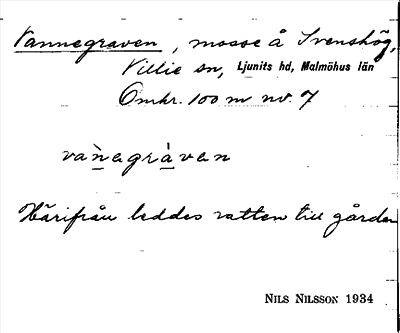 Vannegraven, mosse å Svenshög,
Villie sn, Ljunits hd, Malmöhus län
Omkr. 100 m nv. 7
vànegràven
Härifrån leddes vatten till gården
NILS NILSSON 1934